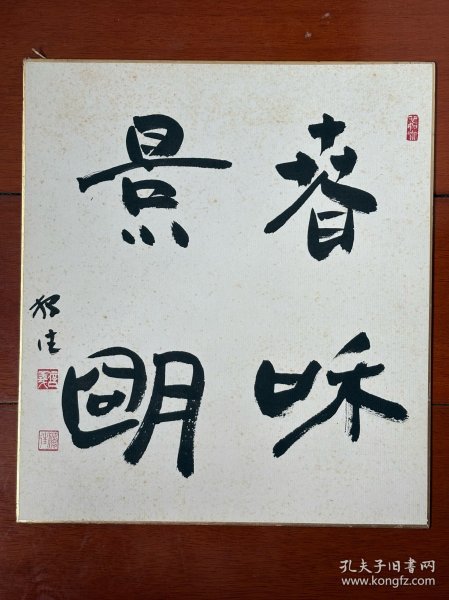 春咊
景朙
孔夫子旧书网
www.kongfz.com